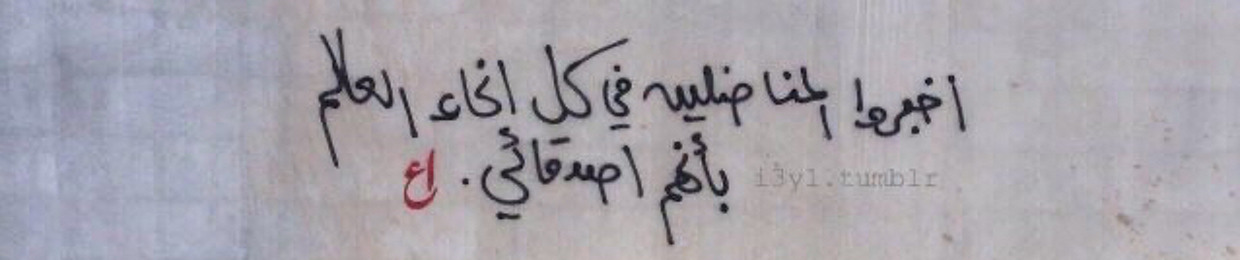 اخبروا المناضلين في كل انحاء العالم
بأنهم اصدقائي . اع
i3yl.tumblr